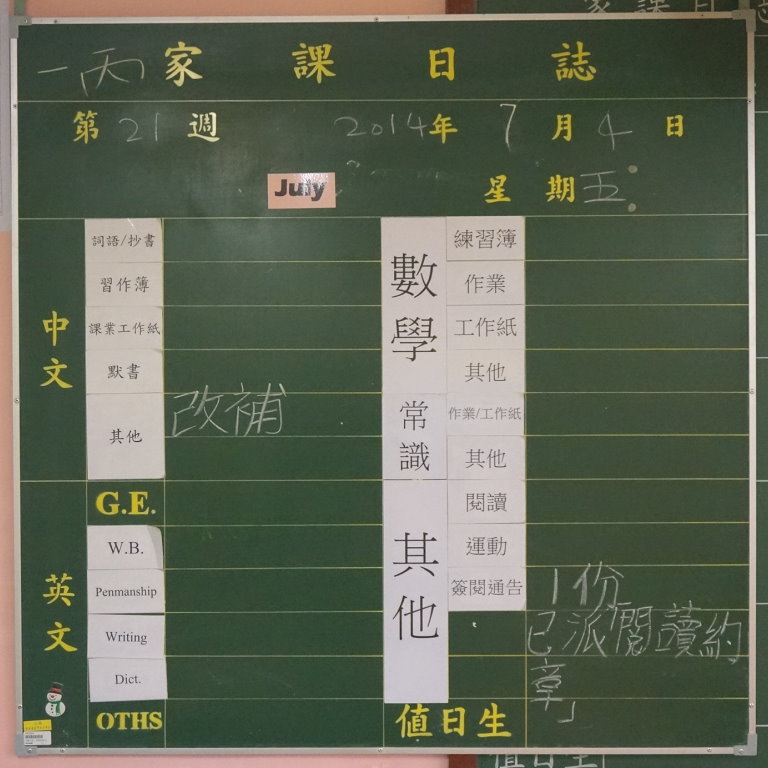 一丙 家課日誌
第21週 2014年7月4日
July 星期五
中文
詞語/抄書
習作簿
課業工作紙
默書
其他 改補
英文
G.E.
W.B.
Penmanship
Writing
Dict.
OTHS
數學
練習簿
作業
工作紙
其他
常識
作業/工作紙
其他
其他
閱讀
運動
簽閱通告 1份
已派閱讀約
章」
值日生